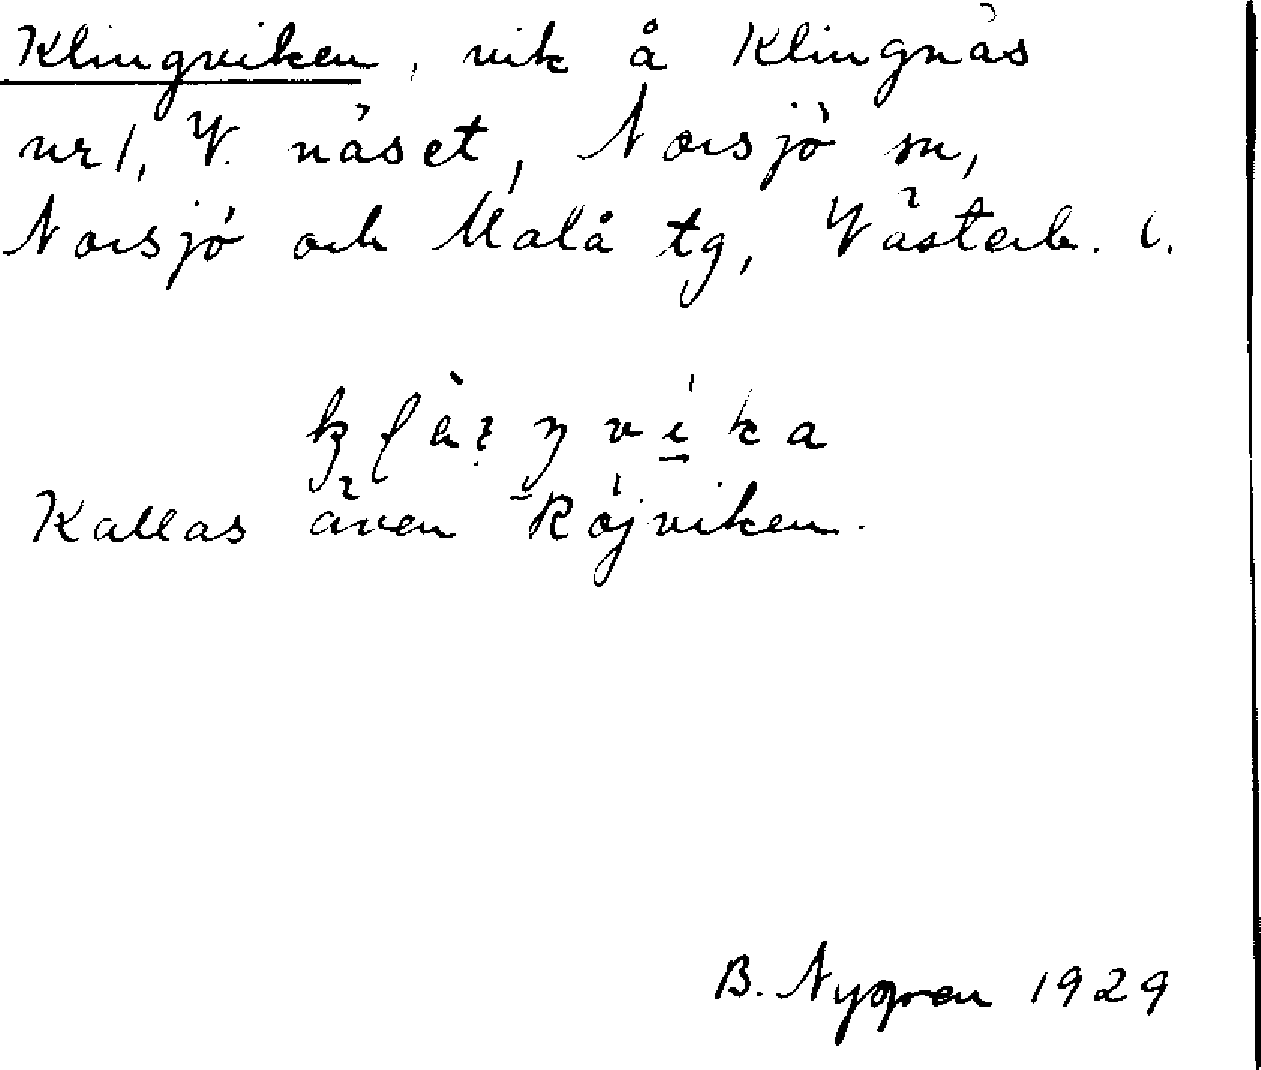 Klingviken, vik å Klingnäs
nr 1, V. näset, Norsjö sn,
Norsjö och Malå tg, Västerb. l.
Kallas även Röjviken.
B. Nygren 1929